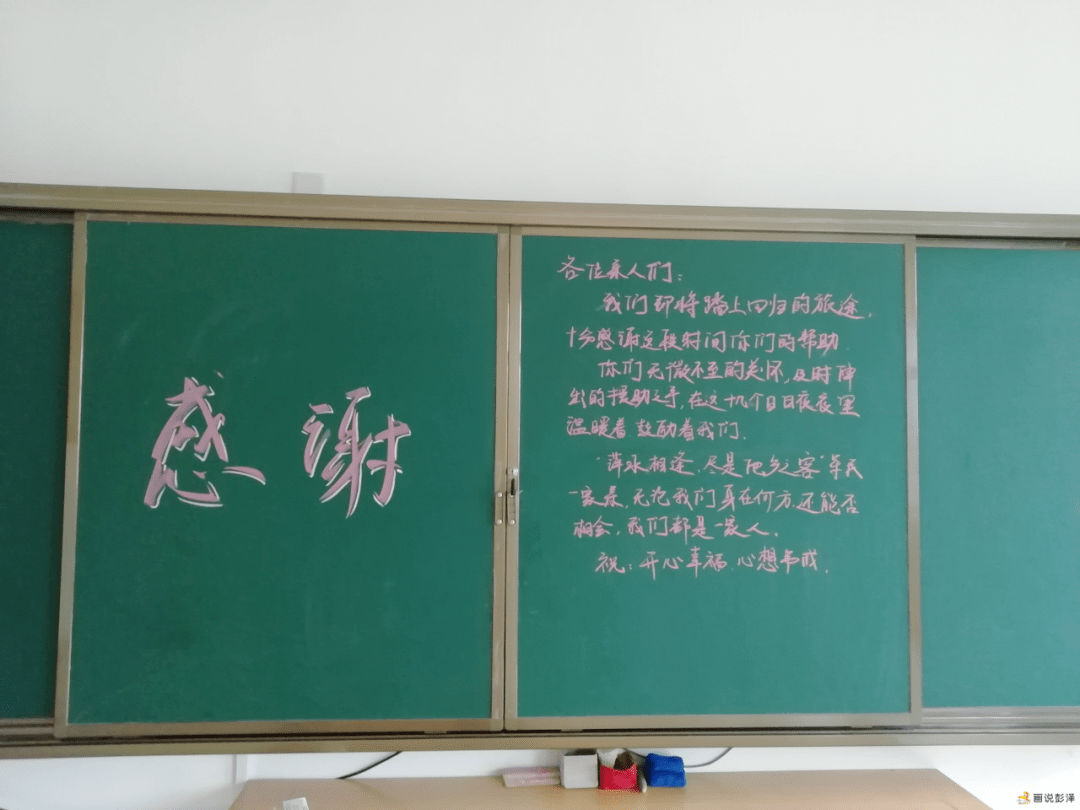 感谢
各位亲人们：
我们即将踏上回归的旅途，
十分感谢这段时间你们的帮助
你们无微不至的关怀，及时伸
出的援助之手，在这十几个日日夜夜里
温暖着 鼓励着我们．
“萍水相逢．尽是他乡之客”军民
一家亲，无论我们身在何方．还能否
相会，我们都是一家人．
祝：开心幸福．心想事成．
画说彭泽